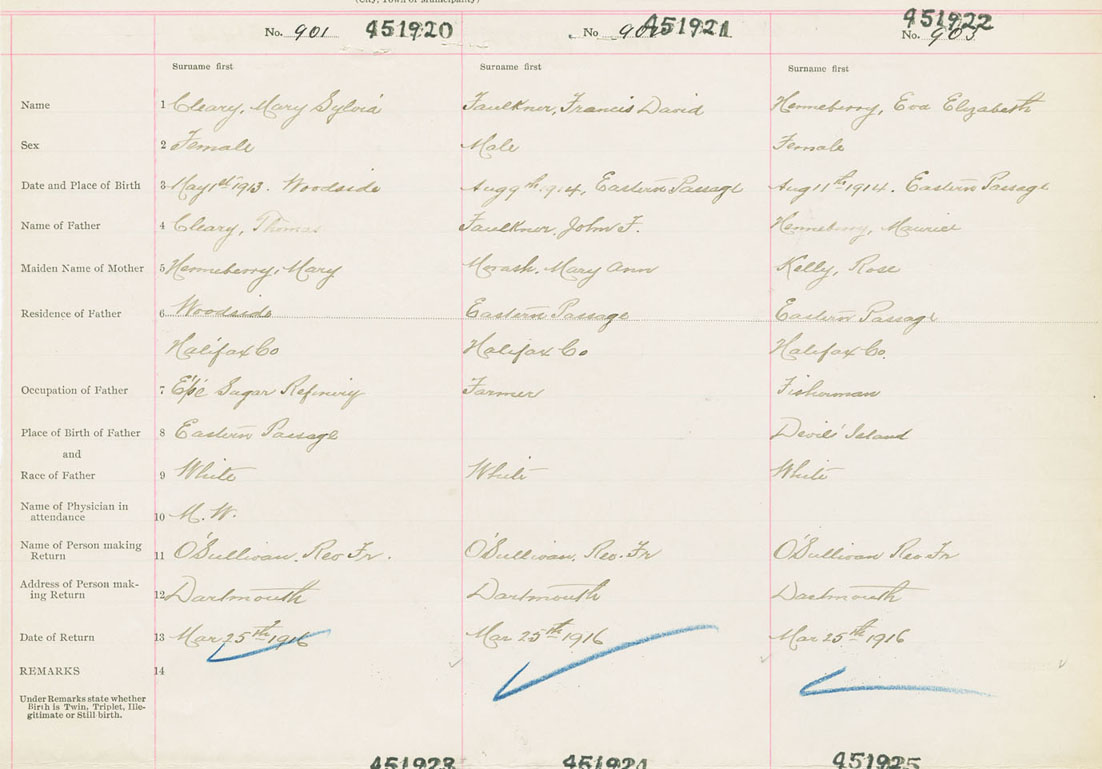 (City, Town or Municipality)
No. 901 451920 No 902 451921 No. 903 451922
Surname first Surname first Surname first
Name 1 Cleary, Mary Sylvia Faulkner, Francis David Henneberry, Eva Elizabeth
Sex 2 Female Male Female
Date and Place of Birth 3 May 1st 1913. Woodside Aug 9th 1914, Eastern Passage Aug 11th 1914. Eastern Passage
Name of Father 4 Cleary, Thomas Faulkner, John F. Henneberry, Maurice
Maiden Name of Mother 5 Henneberry, Mary Morash, Mary Ann Kelly, Rose
Residence of Father 6 Woodside Eastern Passage Eastern Passage
Halifax Co Halifax Co Halifax Co.
Occupation of Father 7 Sugar Refinery Farmer Fisherman
Place of Birth of Father 8 Eastern Passage Devils' Island
and
Race of Father 9 White White White
Name of Physician in
attendance 10 M. W.
Name of Person making
Return 11 O'Sullivan, Rev Fr. O'Sullivan, Rev. Fr O'Sullivan Rev Fr
Address of Person mak-
ing Return 12 Dartmouth Dartmouth Dartmouth
Date of Return 13 Mar 25th 1916 Mar 25th 1916 Mar 25th 1916
REMARKS 14
Under Remarks state whether
Birth is Twin, Triplet, Ille-
gitimate or Still birth.
451923 451924 451925